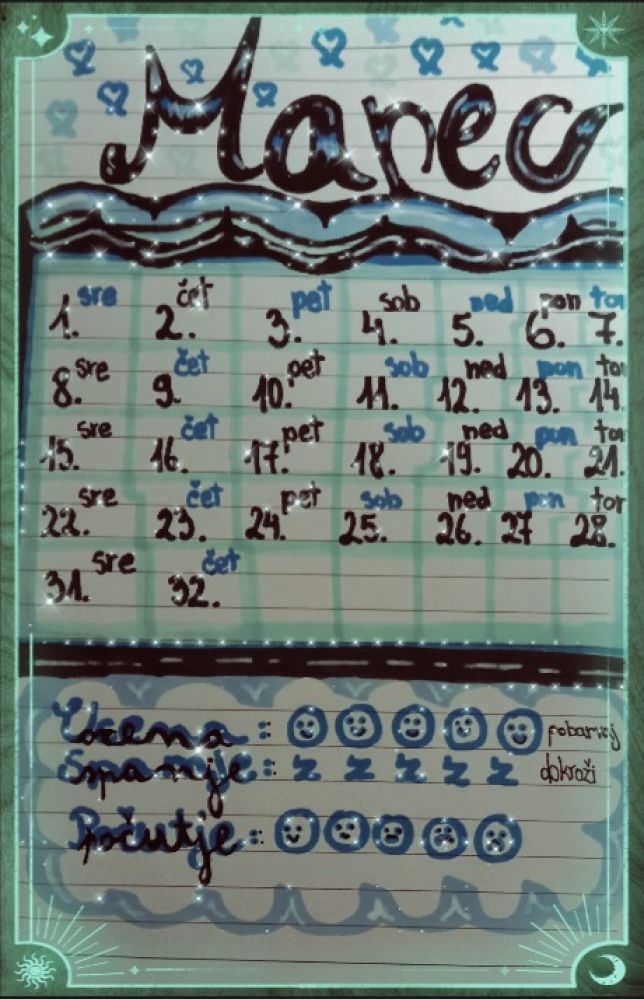 Marec
sre čet pet sob ned pon tor
1. 2. 3. 4. 5. 6. 7.
sre čet pet sob ned pon tor
8. 9. 10. 11. 12. 13. 14.
sre čet pet sob ned pon tor
15. 16. 17. 18. 19. 20. 21.
sre čet pet sob ned pon tor
22. 23. 24. 25. 26. 27 28.
sre čet
31. 32.
Ocena: pobarvaj
Spanje: z z z z z obkroži
Počutje: